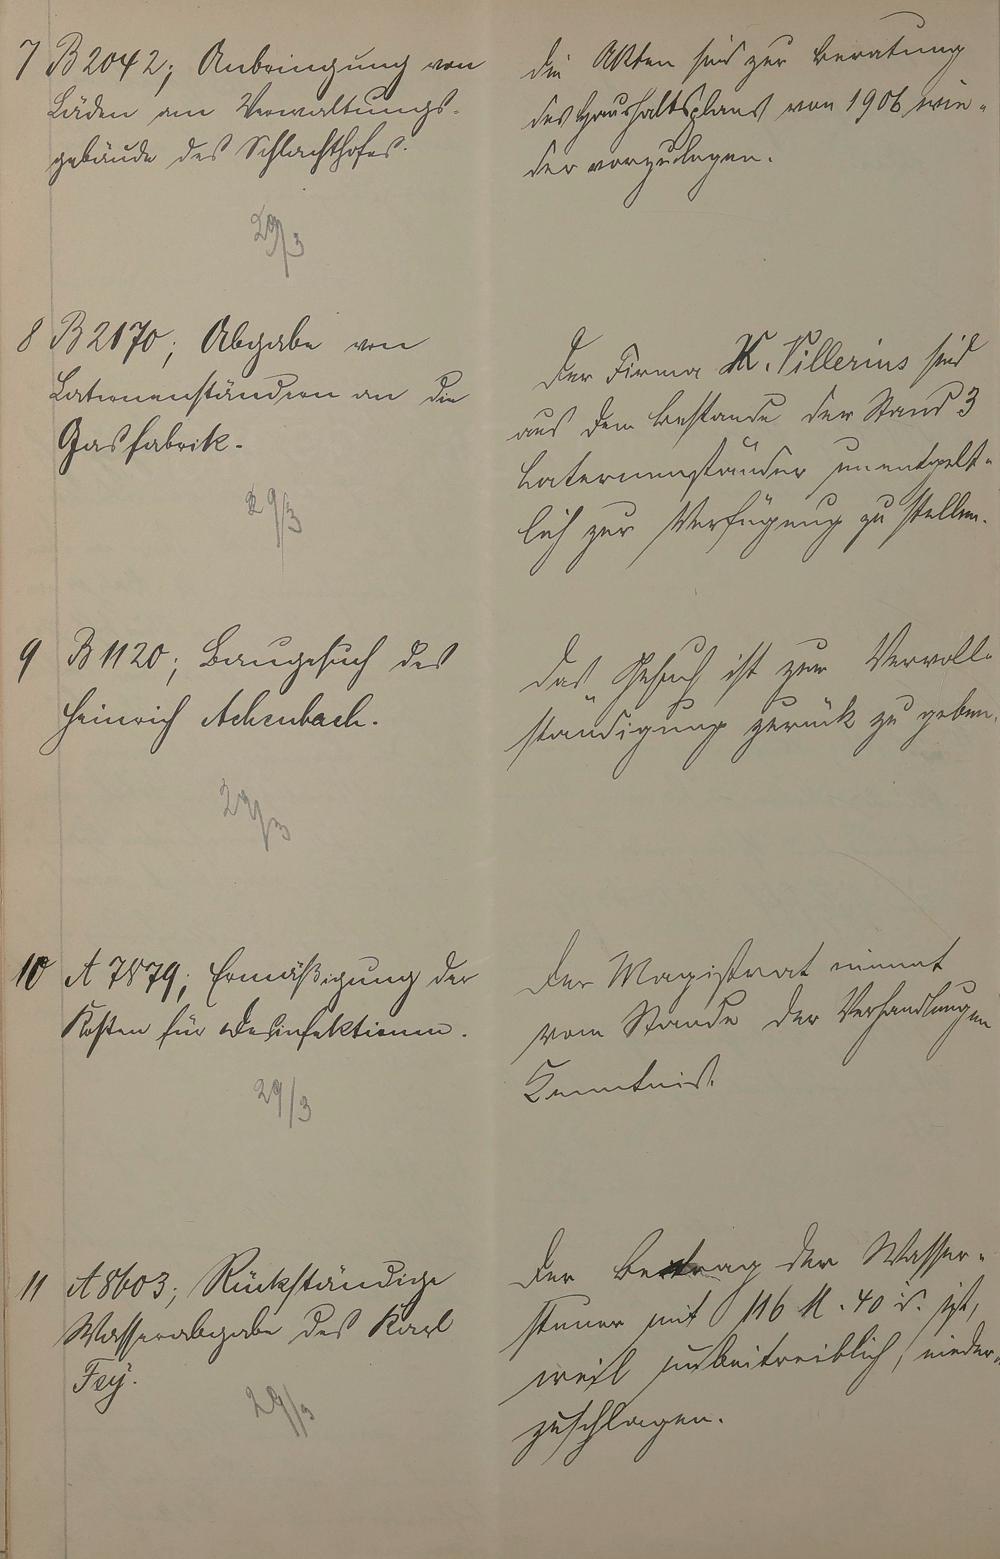 7 B 2042; Anbringung von
Läden am Verwaltungs-
gebäude des Schlachthofes.
29/3
Die Akten sind zur Beratung
des Haushaltsplans von 1906 wie-
der vorzulegen.
8 B 2170; Abgabe von
Laternenständern an die
Gasfabrik.
29/3
Der Firma K. Villerius sind
aus dem Bestande der Stand 3
Laternenständer unentgelt-
lich zur Verfügung zu stellen.
9 B 1120; Baugesuch des
Heinrich Achenbach.
29/3
Das Gesuch ist zur Vervoll-
ständigung zurück zu geben.
10 A 7879; Ermäßigung der
Kosten für Desinfektionen.
29/3
Der Magistrat nimmt
vom Stande der Verhandlungen
Kenntnis.
11 A 8603; Rückständige
Wasserabgabe des Karl
Fey.
29/3
Der Betrag der Wasser-
steuer mit 116 M. 40 ist,
weil unbeitreiblich, nieder-
zuschlagen.